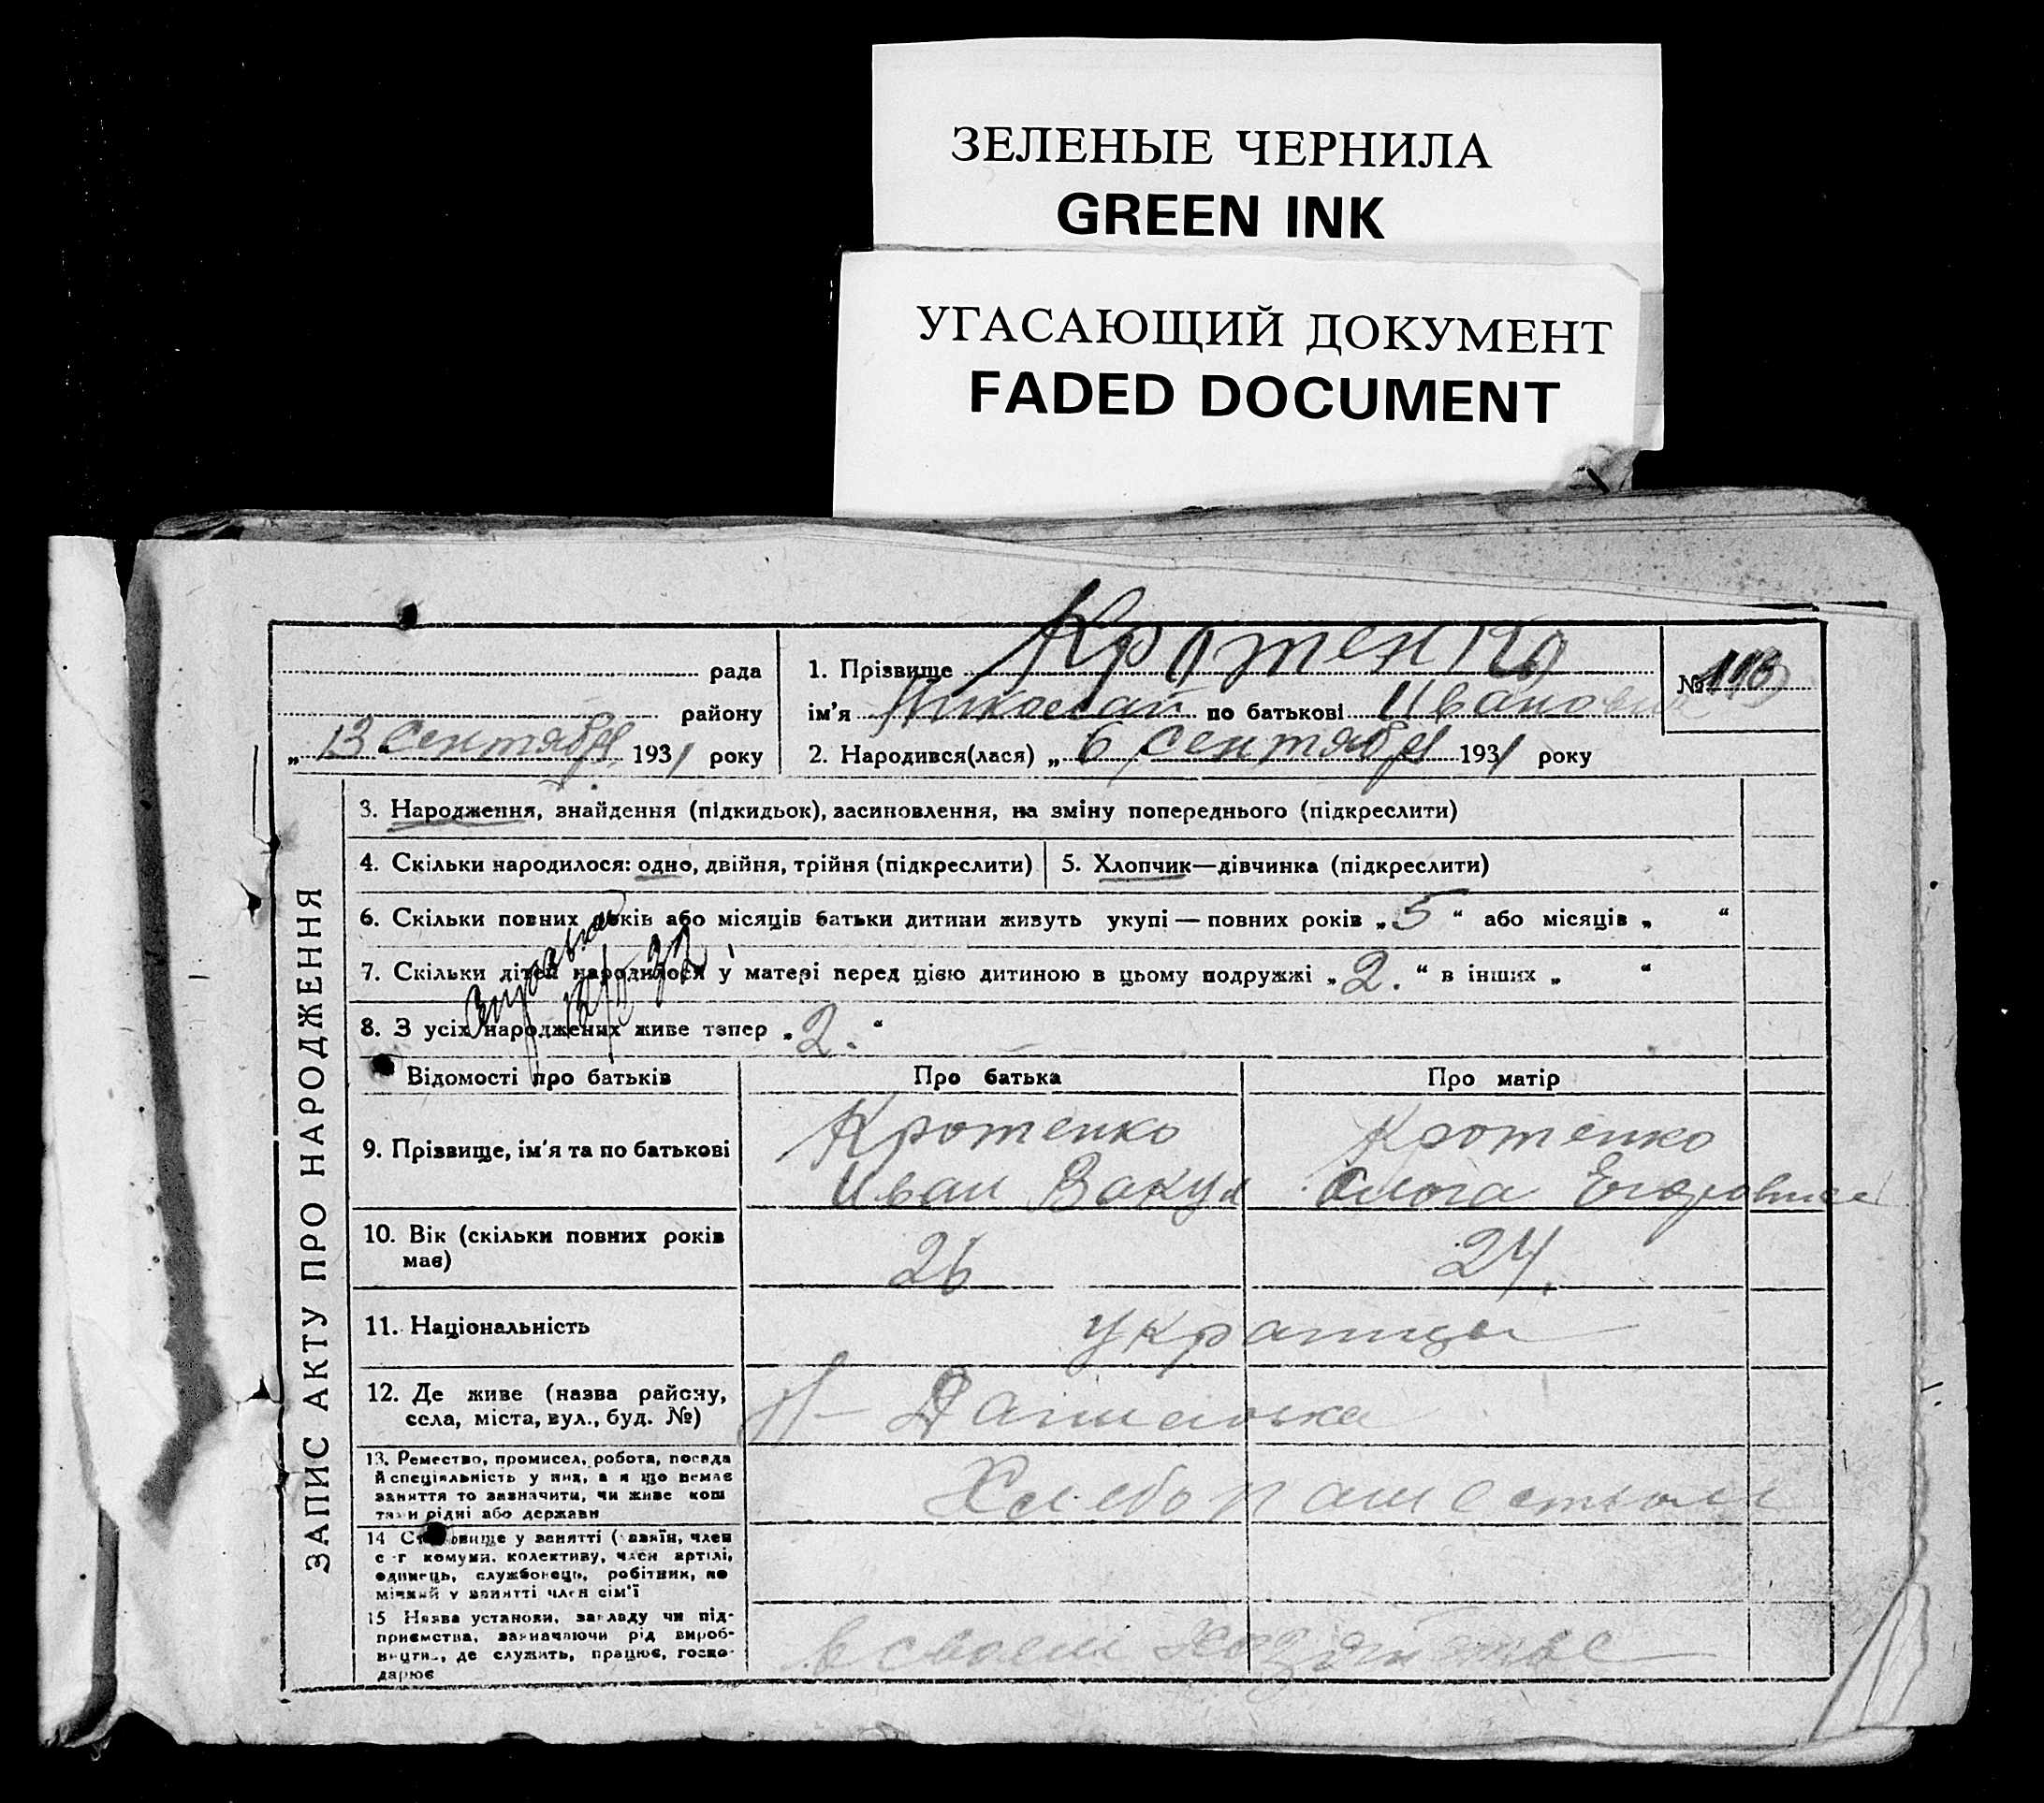 ЗЕЛЕНЫЕ ЧЕРНИЛА
GREEN INK
УГАСАЮЩИЙ ДОКУМЕНТ
FADED DOCUMENT
рада
району
„13 сентября 1931 року
1. Прізвище Кротенко
ім'я Николай по батькові Иванович
2. Народився(лася) „6 сентября 1931 року
№
ЗАПИС АКТУ ПРО НАРОДЖЕННЯ
3. Народження, знайдення (підкидьок), засиновлення, на зміну попереднього (підкреслити)
4. Скільки народилося: одно, двійня, трійня (підкреслити) 5. Хлопчик—дівчинка (підкреслити)
6. Скільки повних років або місяців батьки дитини живуть укупі — повних років „5“ або місяців „ “
7. Скільки дітей народилося у матері перед цією дитиною в цьому подружжі „2.“ в інших „ “
8. З усіх народжених живе тепер „2.“
Відомості про батьків Про батька Про матір
9. Прізвище, ім'я та по батькові
Кротенко
Иван Вакул
Кротенко
Ольга Егоровна
10. Вік (скільки повних років
має)
26
24.
11. Національність
украинцы
12. Де живе (назва району,
села, міста, вул., буд. №)
13. Ремество, промисел, робота, посада
й спеціяльність у них, а я що немає
заняття то зазначити, чи живе кош
та и рідні або держави
Хлебопашество
14 Становище у занятті (азяїн, член
с-г комуни. колективу, член артілі,
одинець, службовець, робітник, по
мічний у занятті член сім'ї
15 Назва установи, закладу чи під-
приємства, зазначаючи рід вироб-
ництв., де служить, працює, госпо-
дарює
в своем хозяйстве